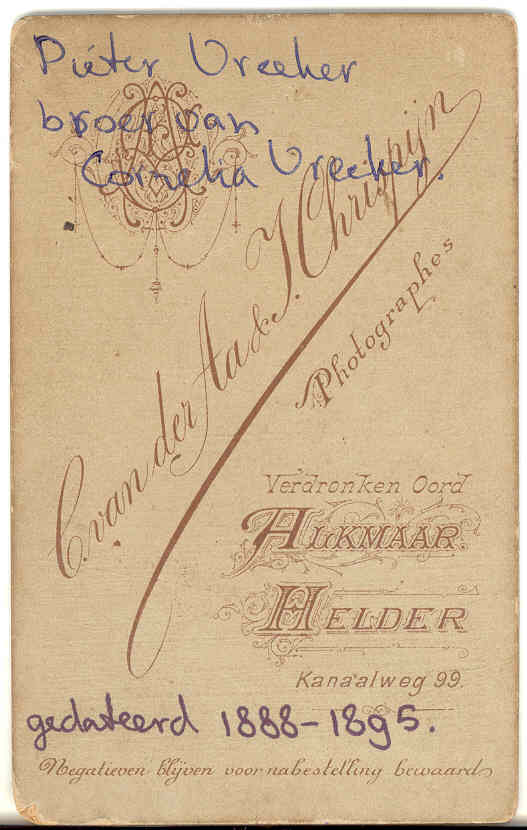 Pieter Vreeker
broer van
Cornelia Vreeker.
C. van der Aa & J. Chrispijn
Photographes
Verdronken Oord
ALKMAAR.
HELDER
Kanaalweg 99.
gedateerd 1888-1895.
Negatieven blijven voor nabestelling bewaard